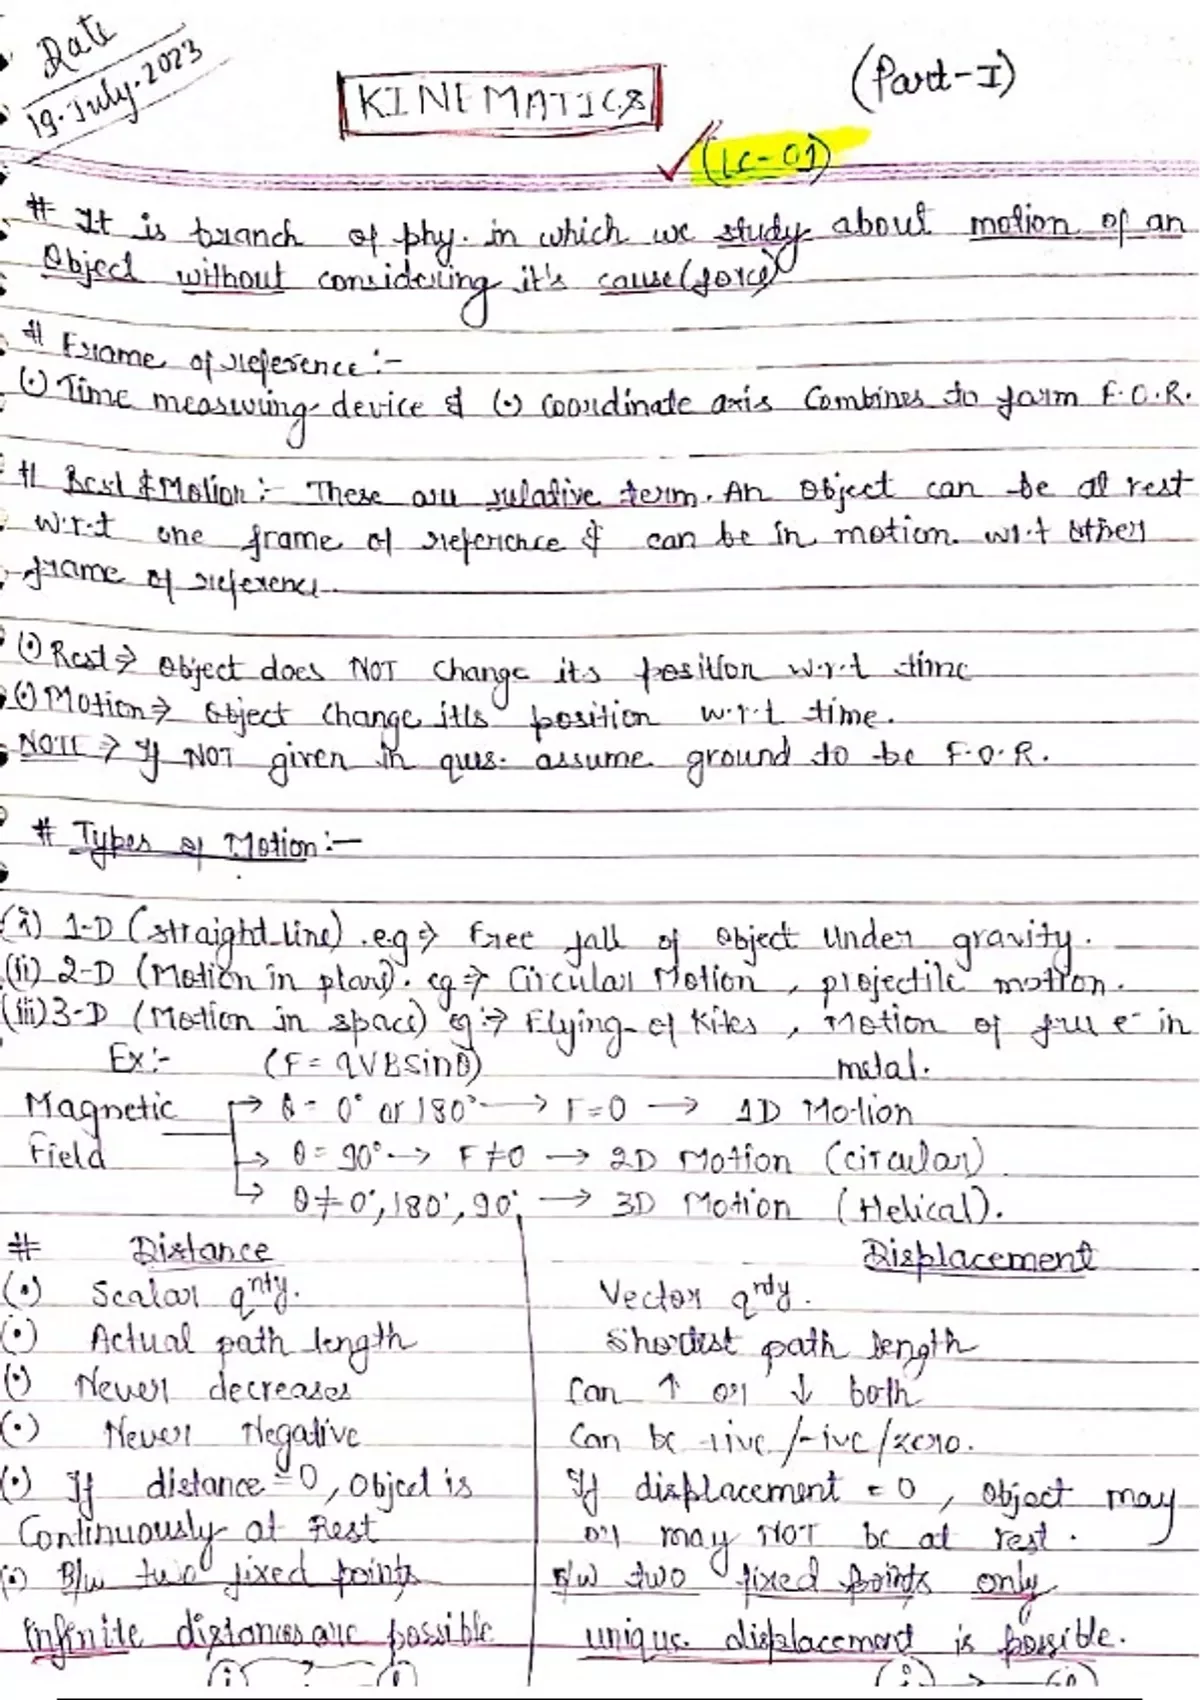 Date
19. July. 2023
KINEMATICS
(Part-I)
(LC-01)
# It is branch of phy. in which we study about motion of an
Object without considering it's cause (force)
# Frame of reference :-
(•) Time measuring device & (•) Coordinate axis Combines to form F.O.R.
# Rest & Motion :- These are relative term. An Object can be at rest
w.r.t one frame of reference & can be in motion w.r.t other
frame of reference.
(•) Rest ⇒ Object does NOT Change its position w.r.t time
(•) Motion ⇒ Object Change its position w.r.t time.
NOTE ⇒ If NOT given in ques. assume ground to be F.O.R.
# Types of Motion :-
(i) 1-D (straight line). e.g ⇒ Free fall of Object Under gravity.
(ii) 2-D (Motion in plan). eg ⇒ Circular Motion, projectile motion.
(iii) 3-D (Motion in space) eg :⇒ Flying of Kites, Motion of free e⁻ in
metal.
Ex:- (F = qVBsinθ)
Magnetic → θ = 0° or 180° → F=0 → 1D Motion
Field → θ = 90° → F≠0 → 2D Motion (circular)
→ θ ≠ 0°, 180°, 90° → 3D Motion (Helical).
# Distance Displacement
(•) Scalar qnty. Vector qnty.
(•) Actual path length Shortest path length
(•) Never decreases Can ↑ or ↓ both
(•) Never Negative Can be +ive/-ive/zero.
(•) If distance = 0, Object is If displacement = 0, Object may
Continuously at Rest or may NOT be at rest.
(•) B/w two fixed points B/w two fixed points only
infinite distances are possible unique displacement is possible.